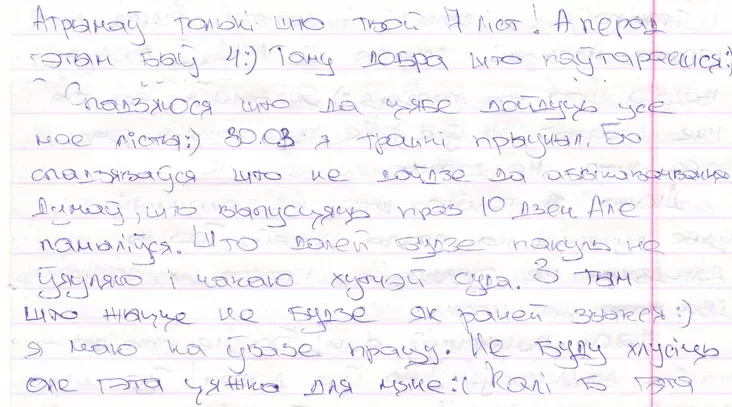 Атрымаў толькі што твой 7 ліст! А перад
гэтым быў 4:) Таму добра што паўтараешся:)
Спадзяюся што да цябе дойдуць усе
мае лісты:) 30.03 я трохі прыуныл. Бо
спадзяваўся што не дойдзе да абвінавачвання
Думаў, што выпусцяць праз 10 дзён. Але
памыліўся. Што далей будзе пакуль не
ўяуляю і чакаю хутчэй суда. З тым
што жыцце не будзе як раней звыкся:)
я маю на ўвазе працу. Не буду хлусіць
але гэта цяжка для мяне:( Калі б гэта